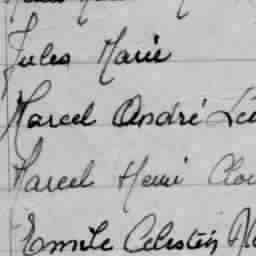 Jules Marie
Marcel André
Marcel Henri
Emile Celestin